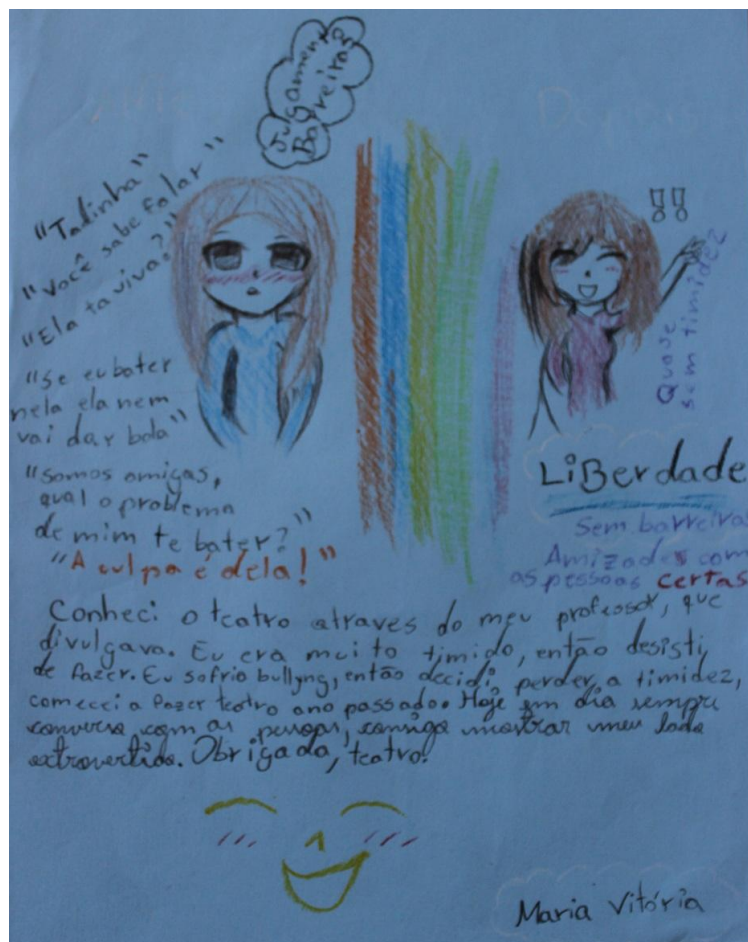 Antes
Depois
Julgamento
Barreiras
"Tadinha"
"Você sabe falar"
"Ela ta viva?!"
"Se eu bater
nela ela nem
vai dar bola"
"Somos amigas,
qual o problema
de mim te bater?"
"A culpa é dela!"
!!
Quase
sem timidez
LiBerdade
Sem barreira
Amizades com
as pessoas certas
Conheci o teatro atraves do meu professor, que
divulgava. Eu era muito timido, então desisti
de fazer. Eu sofria bullyng, então decidi perder a timidez,
comecei a fazer teatro ano passado. Hoje em dia sempre
converso com as pessoas, consigo mostrar meu lado
extrovertido. Obrigada, teatro!
Maria Vitória